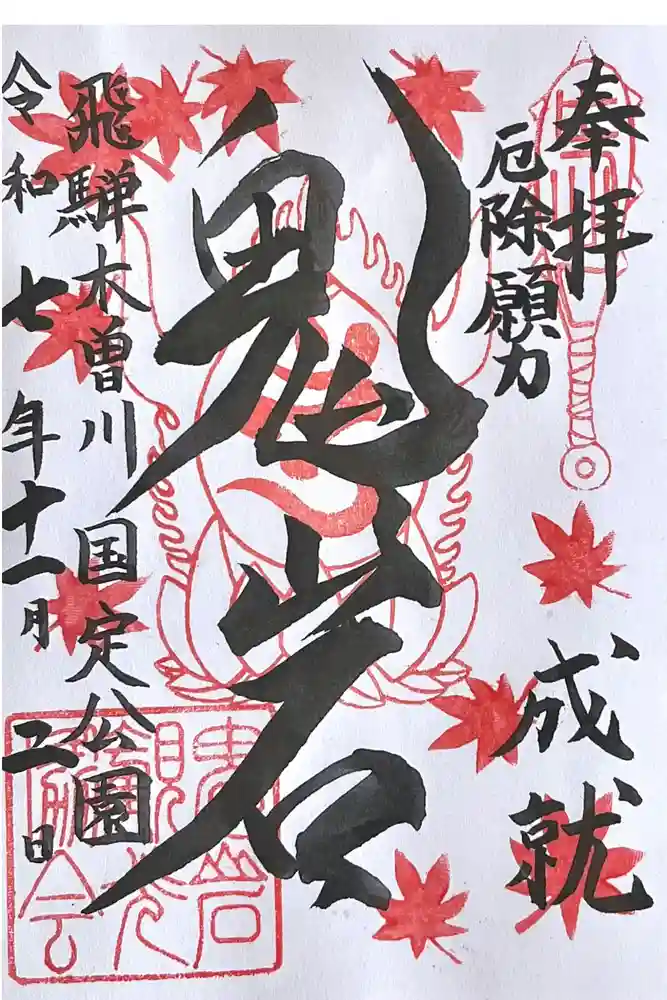 奉拝
厄除願力
成就
鬼岩
飛騨木曽川国定公園
令和七年十一月二日
鬼岩観光協会